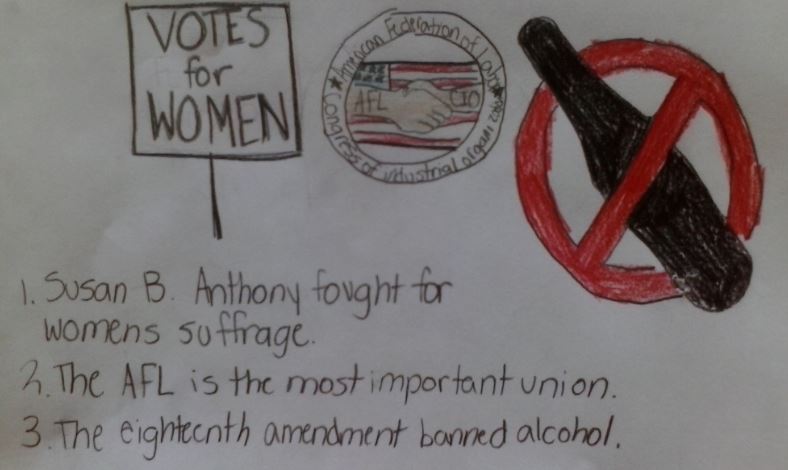 VOTES
for
WOMEN
American Federation of Labor
AFL CIO
Congress of industrial organi
1. Susan B. Anthony fought for
womens suffrage.
2. The AFL is the most important union.
3. The eighteenth amendment banned alcohol.